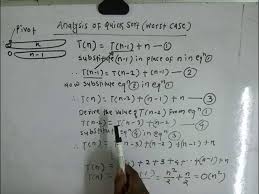 Pivot
Analysis of Quick Sort (Worst Case)
n
0
T(n) = T(n-1) + n - ①
substitute (n-1) in place of n in eqⁿ ①
∴ T(n-1) = T(n-2) + (n-1) - ②
substitute eqⁿ ② in eqⁿ ①
∴ T(n) = T(n-2) + (n-1) + n - ③
Derive the value of T(n-2) from eqⁿ ①
∴ T(n-2) = T(n-3) + (n-2) - ④
substitute eqⁿ ④ in eqⁿ ③
∴ T(n) = T(n-3) + (n-2) + (n-1) + n
T(n) = 1 + 2 + 3 + 4 ... + (n-1) + n
T(n) = n(n+1) = n²/2 + n/2 = O(n²)